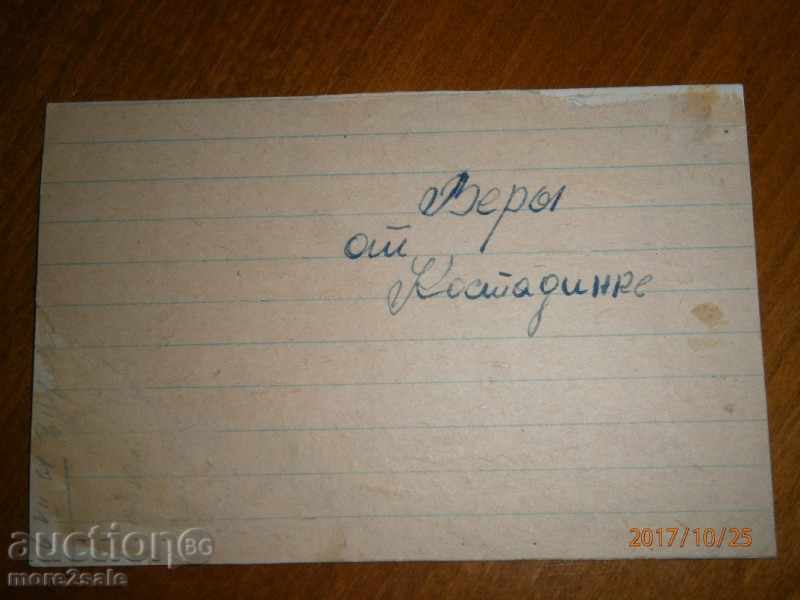 Веры
от
Костадинке
2017/10/25
auction BG
more2sale